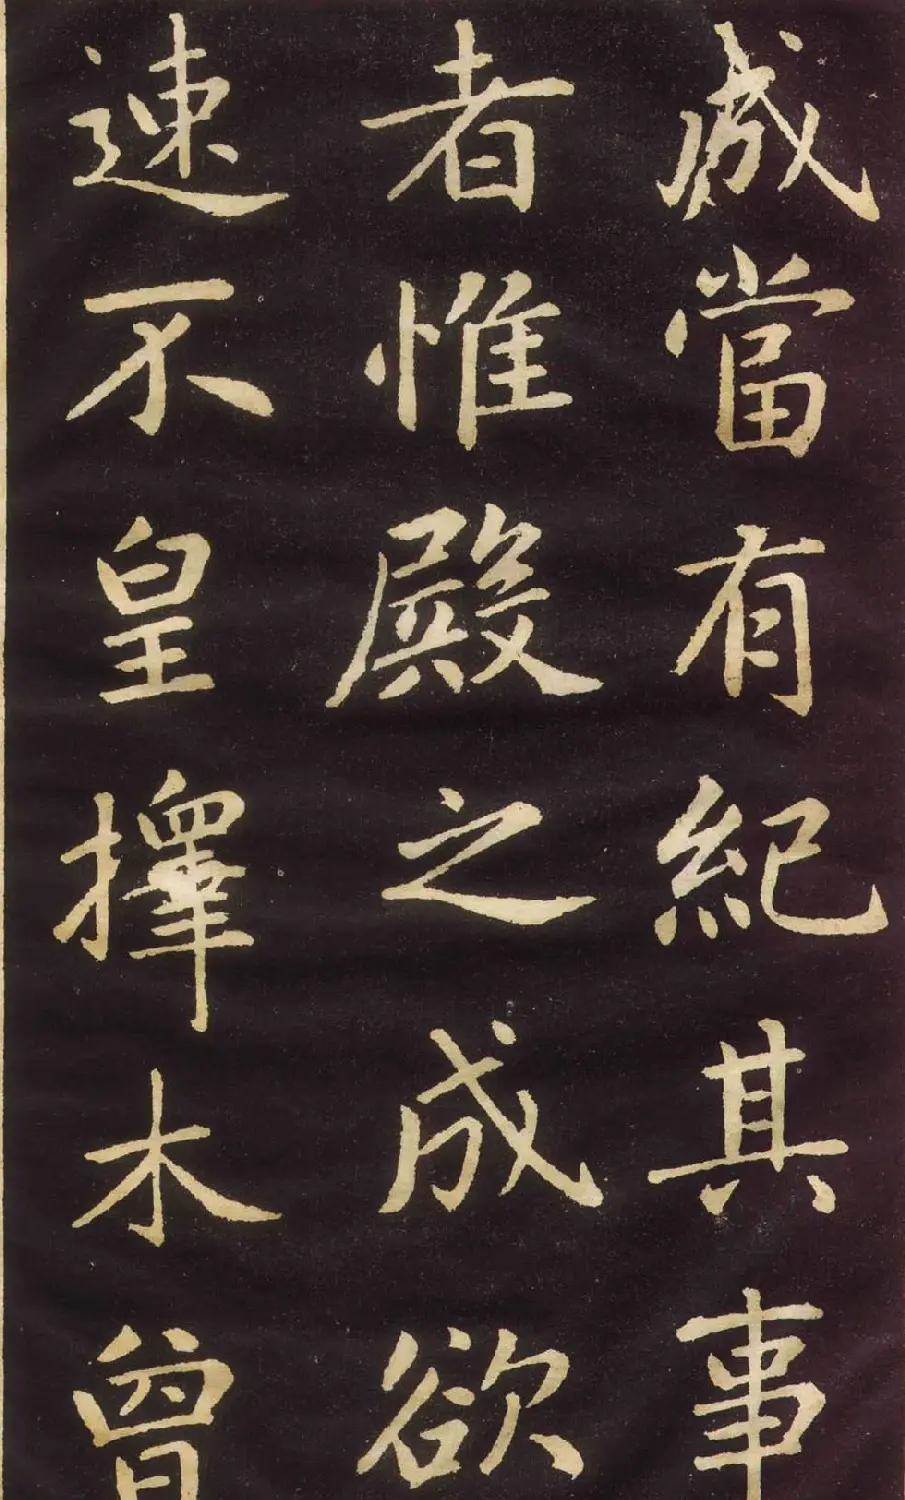 成當有紀其事
者惟殿之成欲
速不皇擇木曾